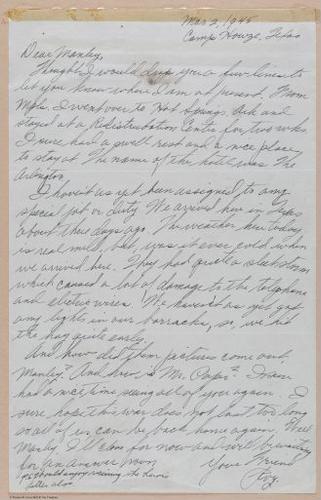 Mar 2, 1945
Camp Howze, Texas
Dear Manley,
Thought I would drop you a few lines to
let you know where I am at present. From
Mpls. I went over to Hot Springs, Ark and
stayed at a Redistribution Center for two wks.
I sure had a swell rest and a nice place
to stay at. The name of the hotel was The
Arlington.
I haven't as yet been assigned to any
special job or duty. We arrived here in Texas
about three days ago. The weather here today
is real mild, but, was it ever cold when
we arrived here. They had quite a sleet storm
which caused a lot of damage to the telephone
and electric wires. We haven't as yet get
any lights in our barracks, so, we hit
the hay quite early.
And how did them pictures come out,
Manley? And how is Mr. ? I sure
had a nice time seeing all of you again. I
sure hope this war does not last too long
so all of us can be back home again. Well
Manley I'll close for now and will be waiting
for an answer soon.
Your Friend